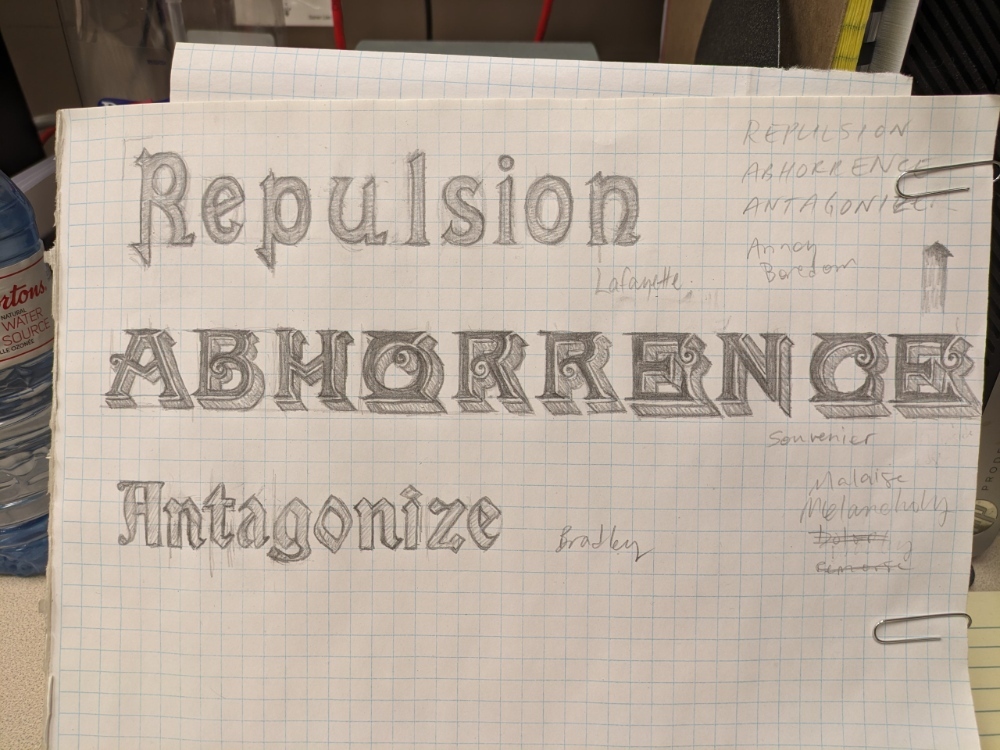 REPULSION
ABHORRENCE
ANTAGONIZE
Annoy
Boredom
Repulsion
Lafayette.
ABHORRENCE
Souvenier
Antagonize
Bradley
Malaise
Melancholly
rtons
NATURAL
WATER
SOURCE